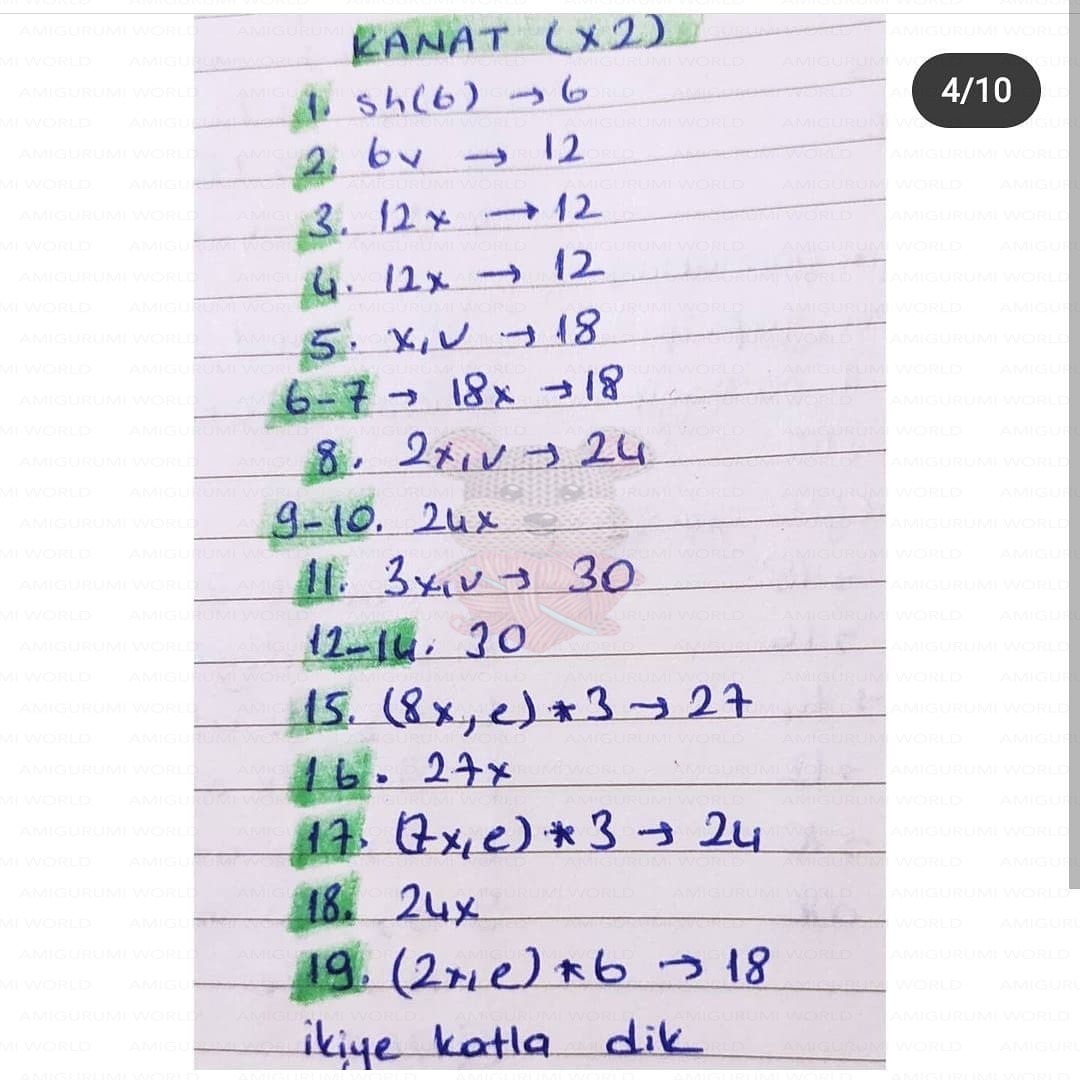 KANAT (x2)
4/10
1. sh(6) → 6
2. 6v → 12
3. 12x → 12
4. 12x → 12
5. x,v → 18
6-7 → 18x → 18
8. 2x,v → 24
9-10. 24x
11. 3x,v → 30
12-14. 30
15. (8x,e)*3 → 27
16. 27x
17. (7x,e)*3 → 24
18. 24x
19. (2x,e)*6 → 18
ikiye katla dik
AMIGURUMI WORLD